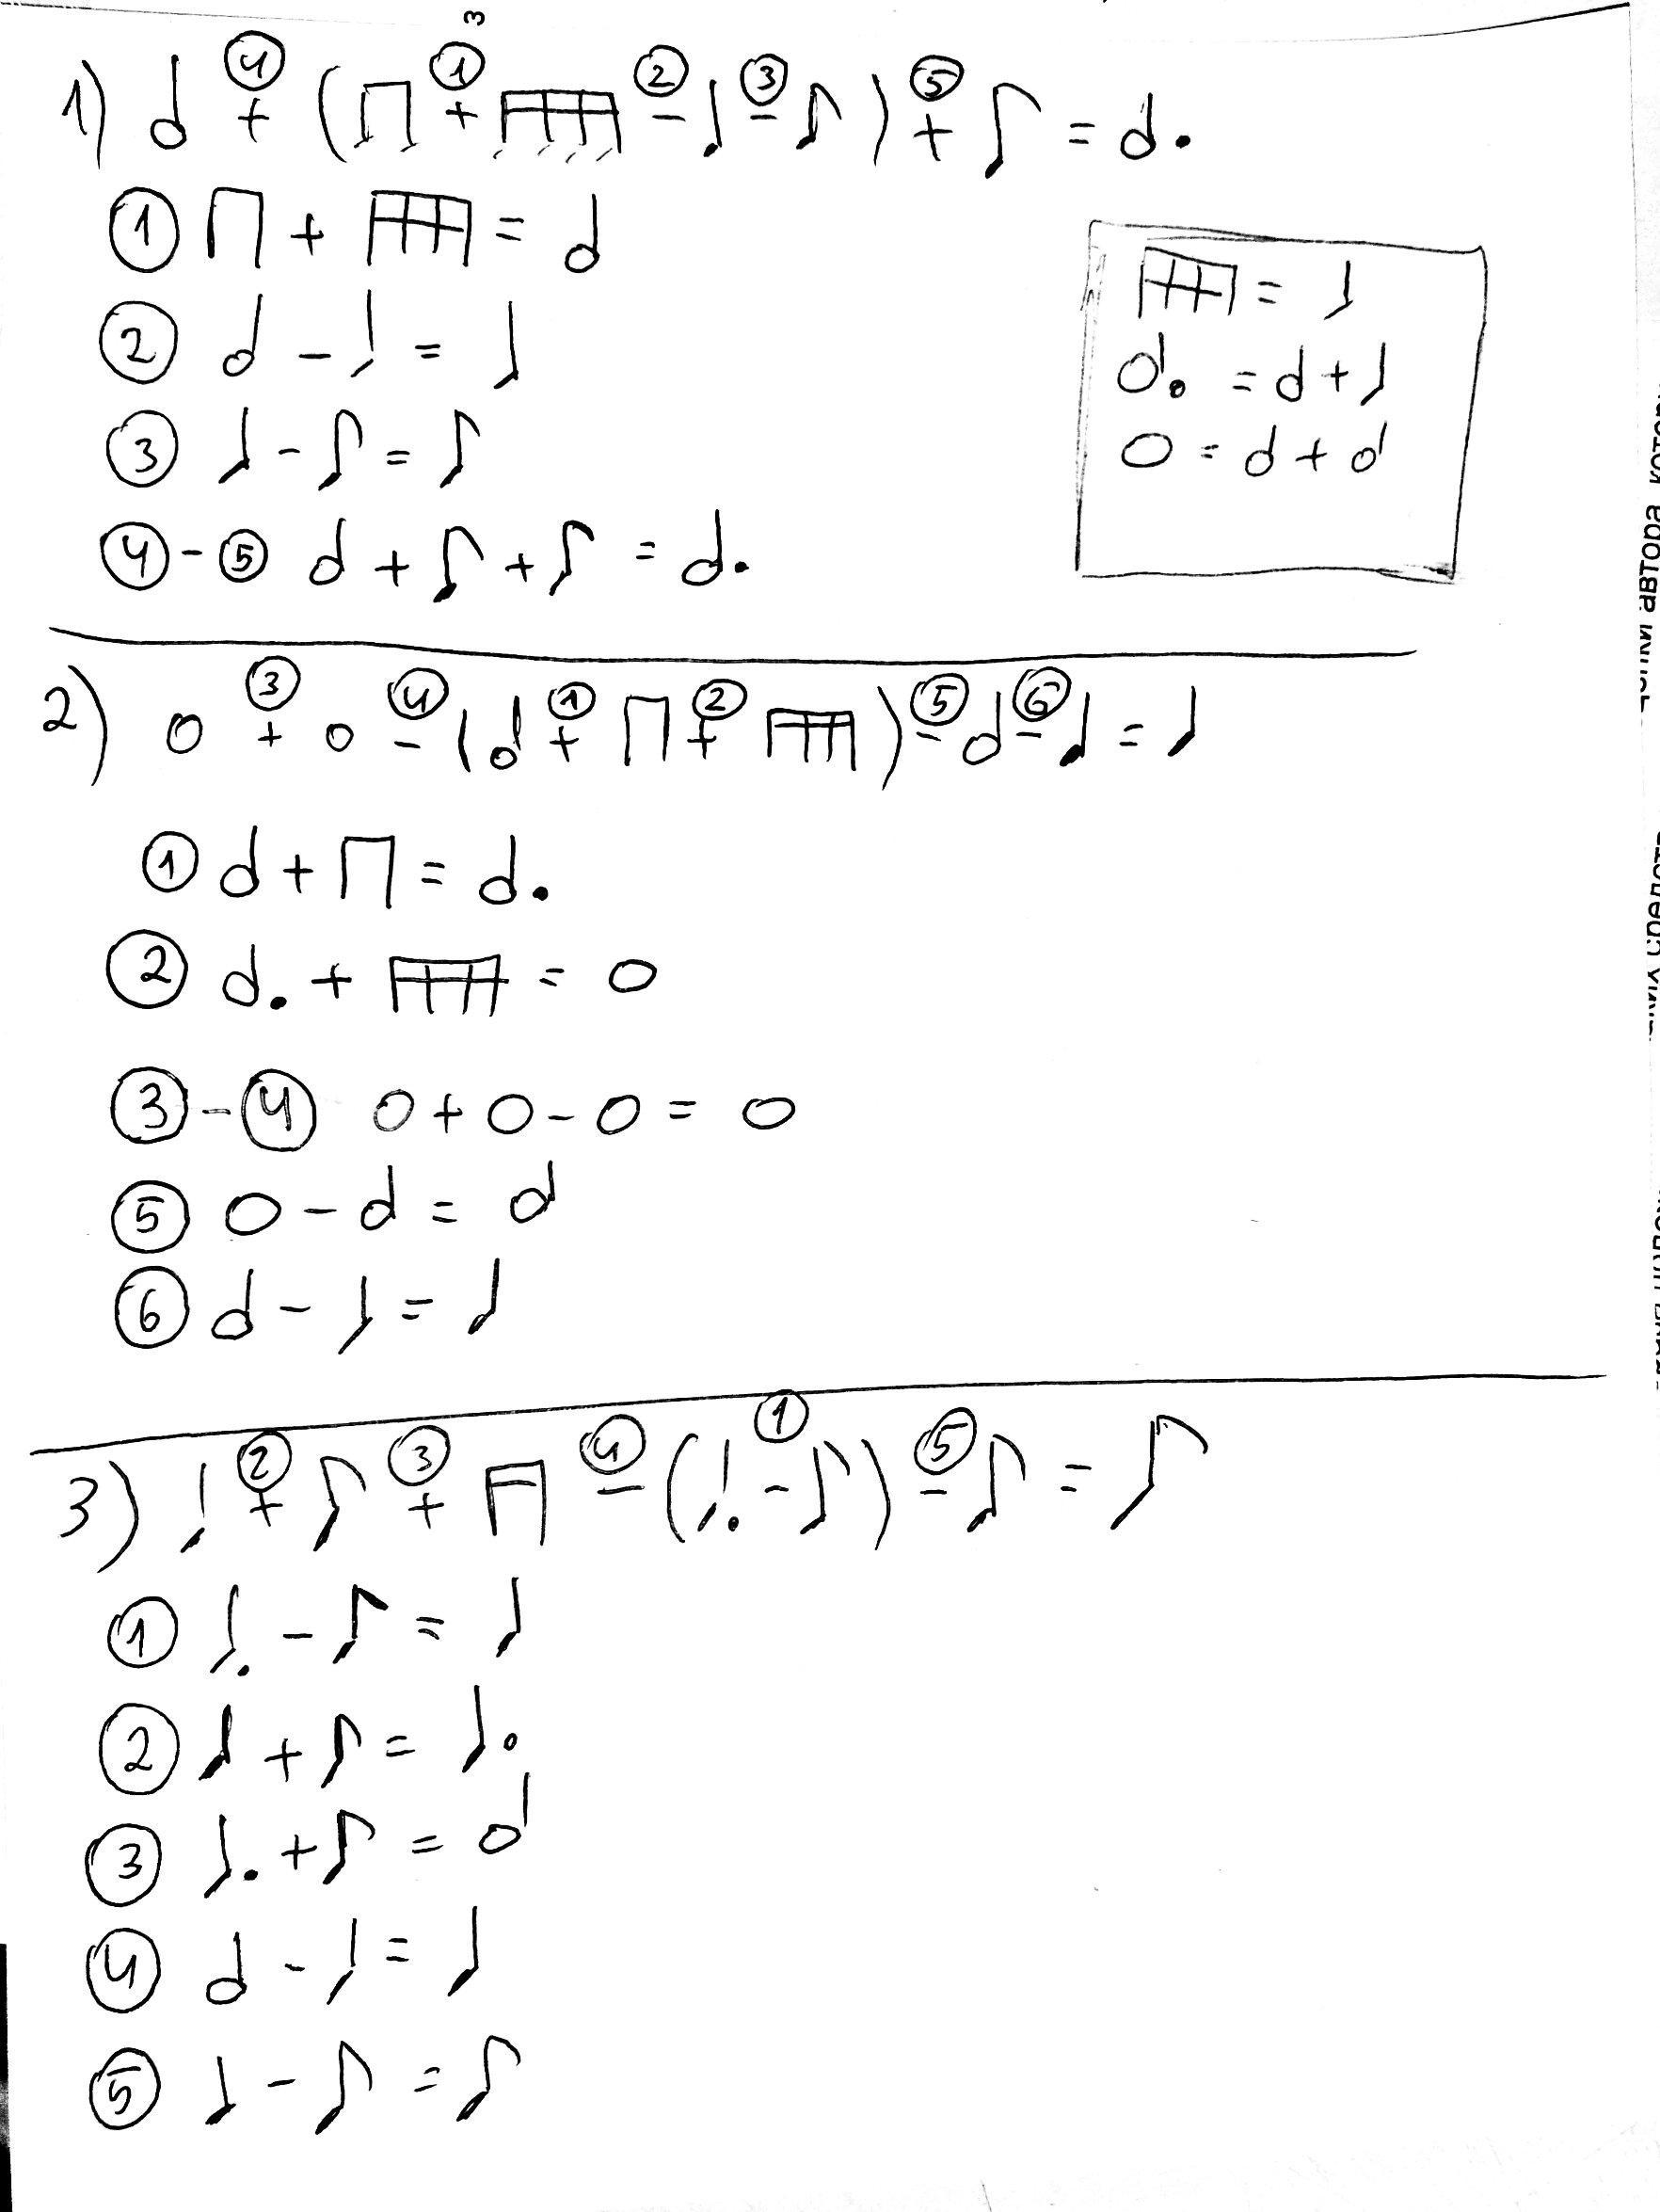 3
1) 𝅗𝅥 ④+ (♫ ①+ 𝅘𝅥𝅯𝅘𝅥𝅯𝅘𝅥𝅯𝅘𝅥𝅯 ②- ♩ ③- ♪) ⑤+ ♪ = 𝅗𝅥.
① ♫ + 𝅘𝅥𝅯𝅘𝅥𝅯𝅘𝅥𝅯𝅘𝅥𝅯 = 𝅗𝅥
② 𝅗𝅥 - ♩ = ♩
③ ♩ - ♪ = ♪
④-⑤ 𝅗𝅥 + ♪ + ♪ = 𝅗𝅥.
𝅘𝅥𝅯𝅘𝅥𝅯𝅘𝅥𝅯𝅘𝅥𝅯 = ♩
𝅗𝅥. = 𝅗𝅥 + ♩
𝅝 = 𝅗𝅥 + 𝅗𝅥
2) 𝅝 ③+ 𝅝 ④- (𝅗𝅥 ①+ ♫ ②+ 𝅘𝅥𝅯𝅘𝅥𝅯𝅘𝅥𝅯𝅘𝅥𝅯) ⑤- 𝅗𝅥 ⑥- ♩ = ♩
① 𝅗𝅥 + ♫ = 𝅗𝅥.
② 𝅗𝅥. + 𝅘𝅥𝅯𝅘𝅥𝅯𝅘𝅥𝅯𝅘𝅥𝅯 = 𝅝
③-④ 𝅝 + 𝅝 - 𝅝 = 𝅝
⑤ 𝅝 - 𝅗𝅥 = 𝅗𝅥
⑥ 𝅗𝅥 - ♩ = ♩
3) ♩ ②+ ♪ ③+ ♬ ④- (♩. ①- ♪) ⑤- ♪ = ♪
① ♩. - ♪ = ♩
② ♩ + ♪ = ♩.
③ ♩. + ♪ = 𝅗𝅥
④ 𝅗𝅥 - ♩ = ♩
⑤ ♩ - ♪ = ♪
автора
средств